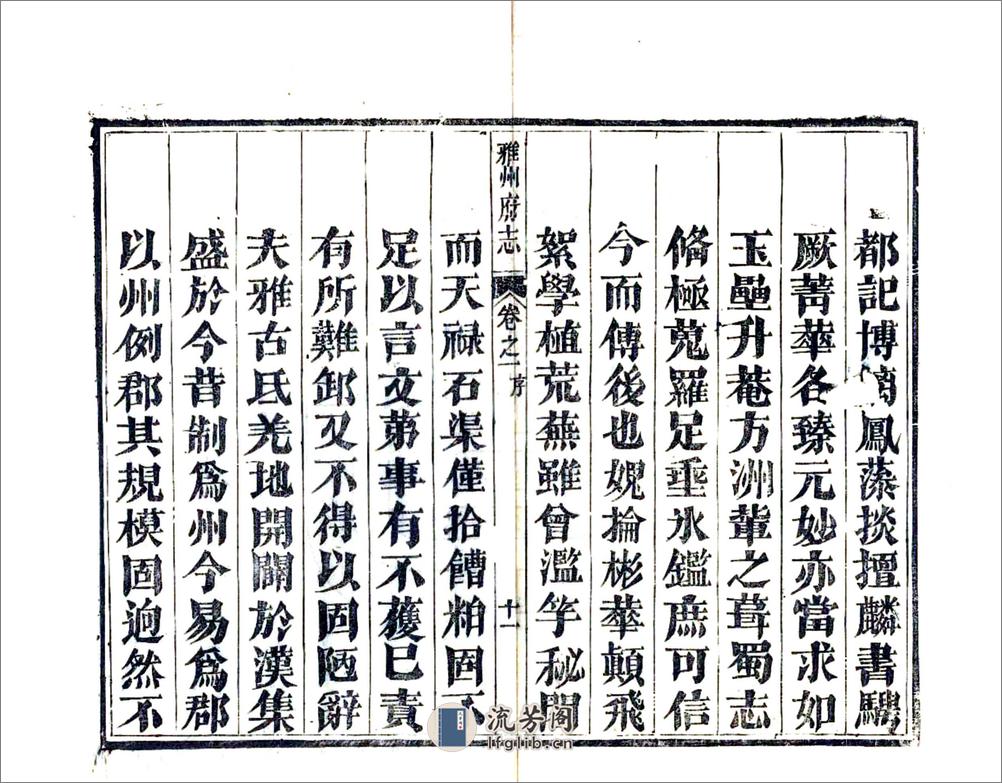 都記博摛鳳藻掞擅麟書騁
厥菁華各臻元妙亦當求如
玉壘升菴方洲輩之葺蜀志
俻極蒐羅足垂氷鑑庶可信
今而傳後也媿掄彬華顛飛
絮學植荒蕪雖曾濫竽秘閣
雅州府志 卷之一 序 十一
而天禄石渠僅拾糟粕固不
足以言文苐事有不獲已責
有所難卸又不得以固陋辭
夫雅古氐羌地開闢於漢集
盛於今昔制爲州今易爲郡
以州例郡其規模固逈然不
流芳阁
lfglib.cn